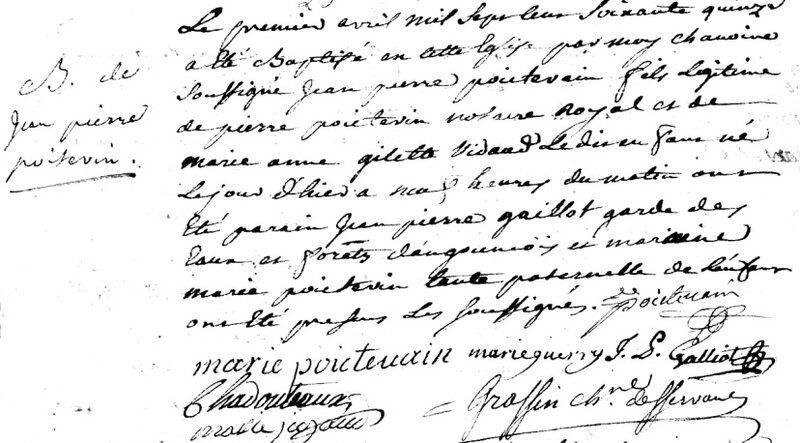 B. de
Jean pierre
poitevin.
Le premier avril mil sept cent soixante quinze
a été Baptisé en cette Eglise par moy chanoine
soussigné Jean pierre poictevain fils Legitime
de pierre poictevin notaire Royal et de
marie anne gilette Vidaud Ledit enfant né
Le jour d'hier a neuf heures du matin ont
Eté parain Jean pierre gaillot garde des
Eaux et forêts d'angoumois et maraine
marie poictevin tante paternelle de l'enfant
ont Eté presens Les soussignés. poictevain
marie poictevain marie guerry J. P. Galliot
Chadouteaux Grassin ch.ne desservant